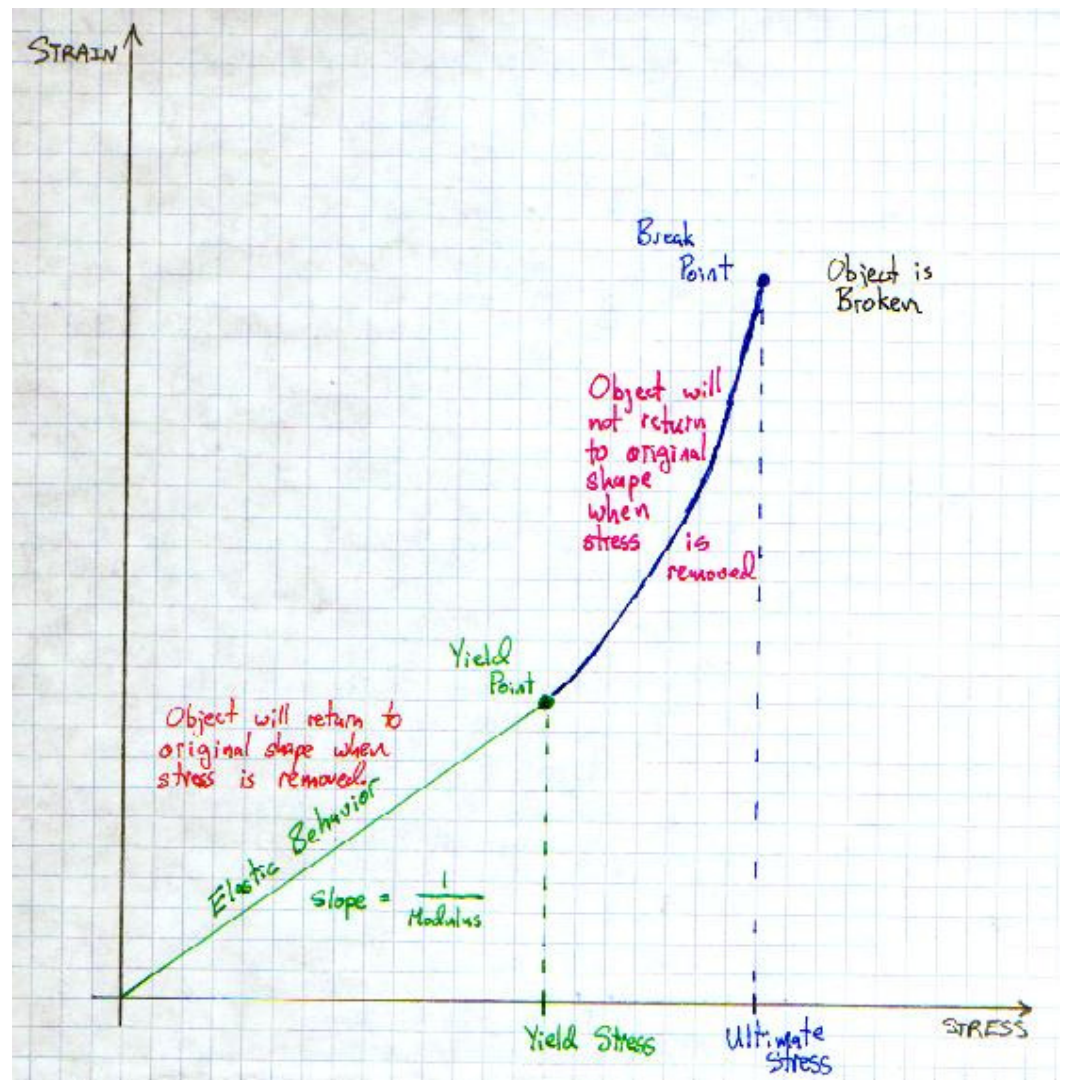 STRAIN
Break
Point
Object is
Broken
Object will
not return
to original
shape
when
stress is
removed
Yield
Point
Object will return to
original shape when
stress is removed.
Elastic Behavior
Slope = 1
Modulus
Yield Stress
Ultimate
Stress
STRESS